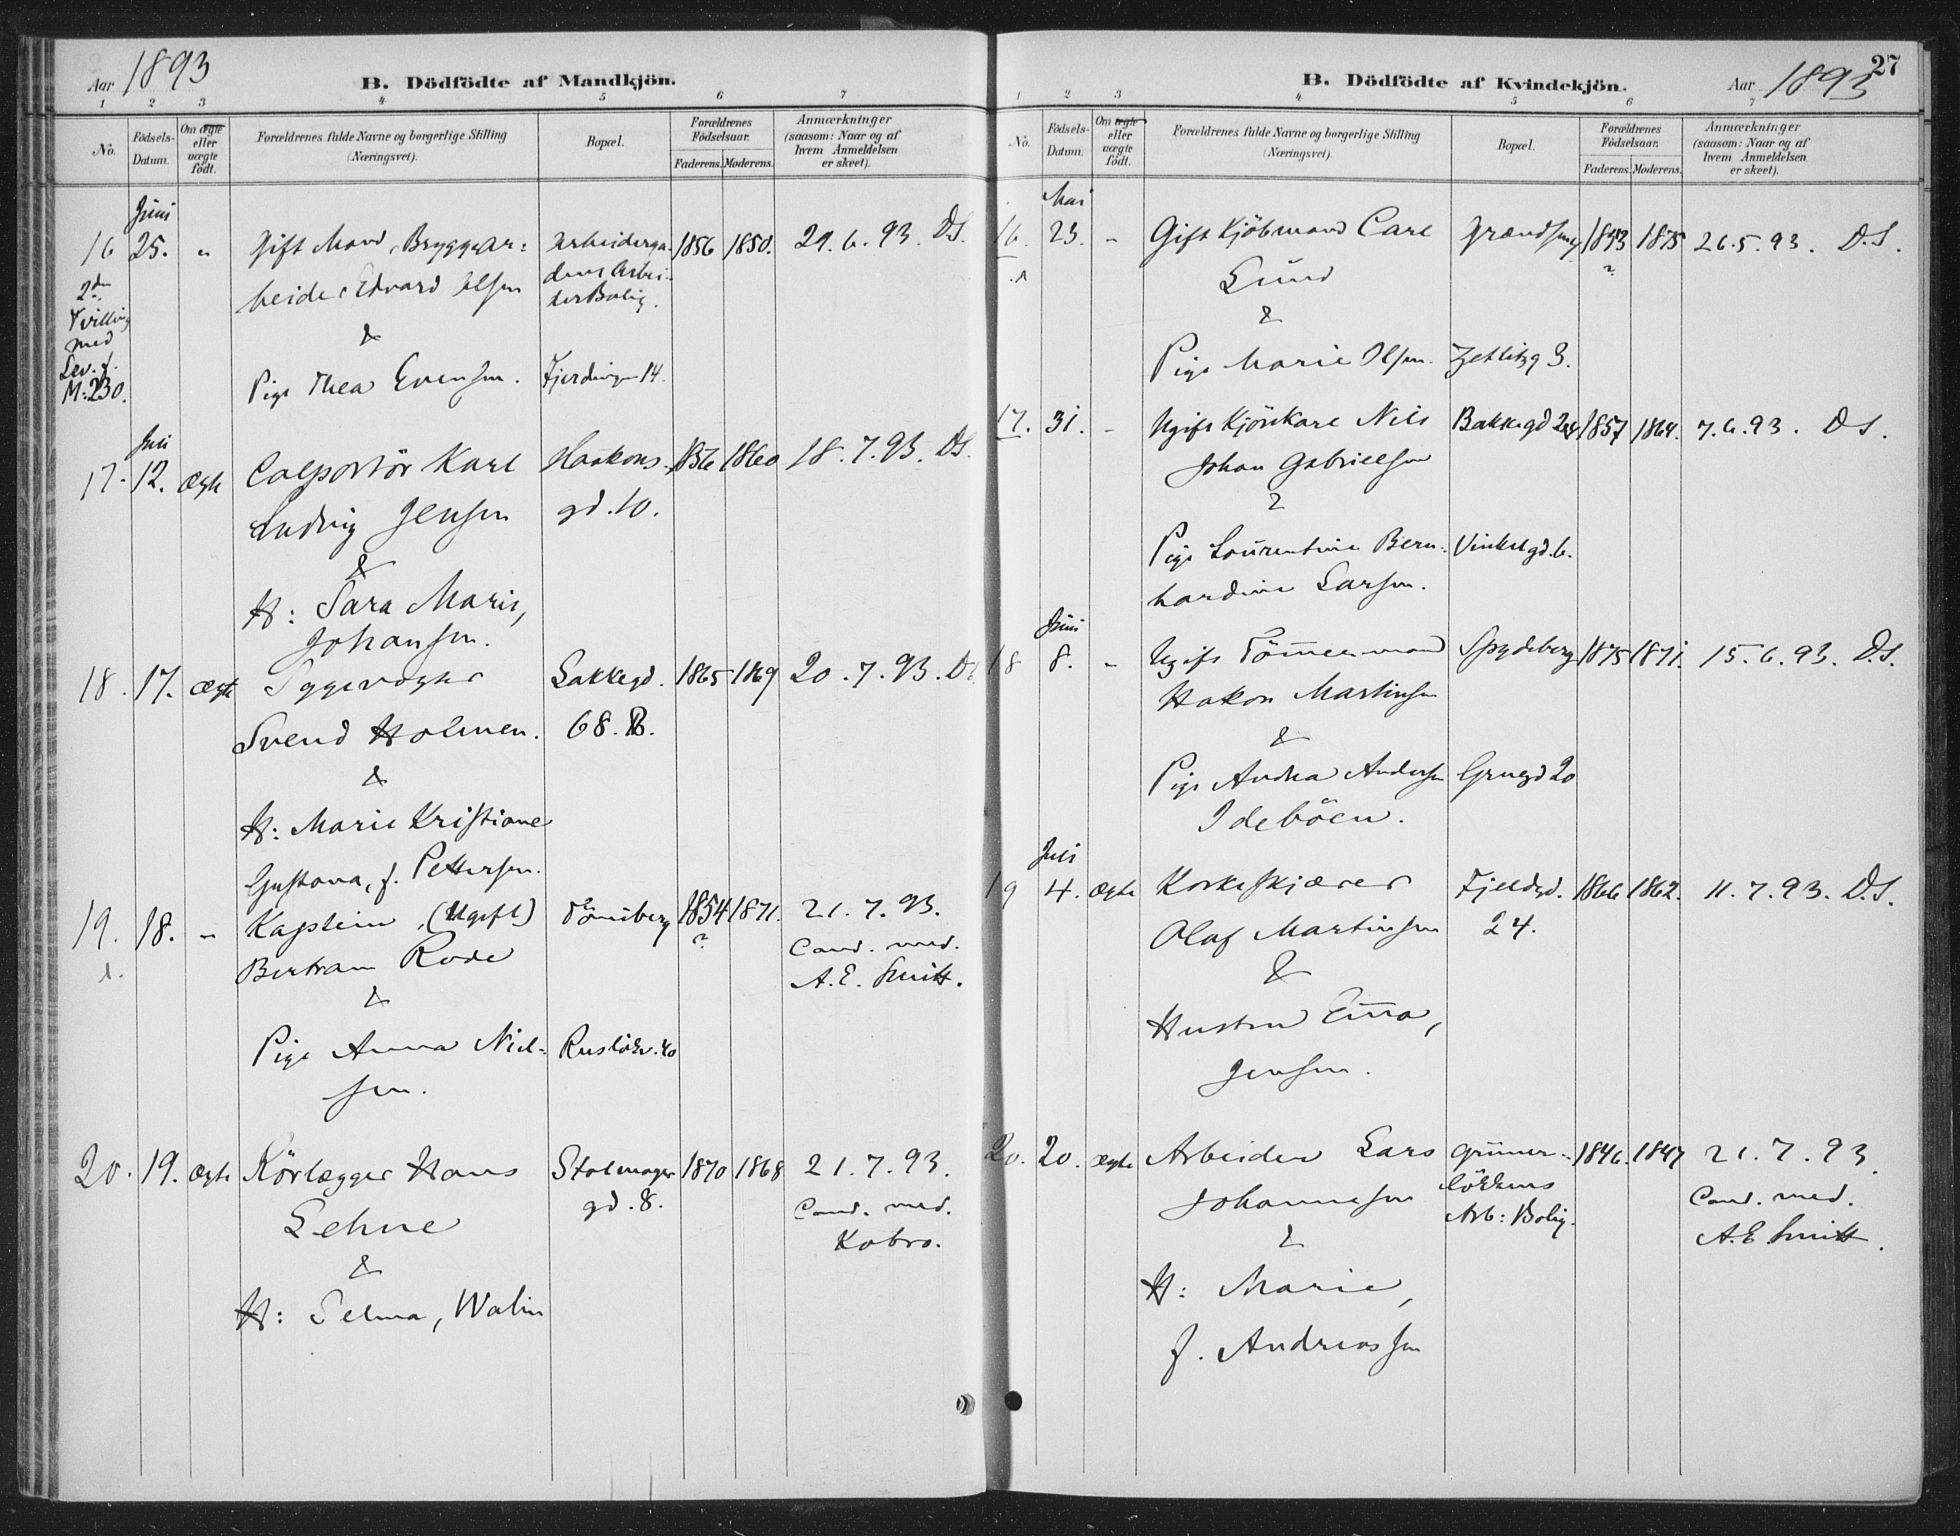 Aar 1893
B. Dödfödte af Mandkjön.
1 2 3 4 5 6 7
No.
Födsels-
Datum.
Om ægte
eller
uægte
födt.
Forældrenes fulde Navne og borgerlige Stilling
(Næringsvei).
Bopæl.
Forældrenes
Födselsaar.
Faderens. Moderens.
Anmærkninger
(saasom: Naar og af
hvem Anmeldelsen
er skeet).
Juni
16 25. " Gift Mand, Bryggear- 1856 1850. 29.6.93. D.S.
2den
Tvilling
med
Lev. f.
M: 230.
beider Edvard Olsen
&
Pige Thea Evensen. Fjerdingen 14.
Juli
17. 12. ægte Colportör Karl Haakons- 1856 1860 18.7.93. D.S.
Ludvig Jensen gd. 10.
&
H: Sara Marie,
Johansen.
18. 17. ægte Lakkegd. 1865 1869 20.7.93. D.S.
Svend Holmen. 68. B.
&
H: Marie Kristiane
Gustava, f. Pettersen.
19. 18. " Kaptein (Ugift) Tönsberg 1854 1871. 21.7.93.
?
Bertram Rode Cand. med.
A. E. Smitt.
&
Pige Anna Niel-Ruslökv. 40
sen.
20. 19. ægte Rörlægger Hans Stolmager 1870 1868 21.7.93.
Lehne gd. 8. Cand. med.
Kobro.
&
H: Selma, Walin
27
B. Dödfödte af Kvindekjön.
Aar 1893
1 2 3 4 5 6 7
No.
Födsels-
Datum.
Om ægte
eller
uægte
födt.
Forældrenes fulde Navne og borgerlige Stilling
(Næringsvei).
Bopæl.
Forældrenes
Födselsaar.
Faderens. Moderens.
Anmærkninger
(saasom: Naar og af
hvem Anmeldelsen
er skeet).
Mai
16. 23. " Gift Kjöbmand Carl 1853 1875 26.5.93. D.S.
?
Lund
&
Pige Marie Olsen. Zetlitzg 3.
17. 31. " Ugift Kjörekarl Nils Bakkegd 1857 1864. 7.6.93. D.S.
Johan Gabrielsen
&
Pige Laurentine Bern- Vinkelgd. 6.
hardine Larsen.
Juni
18 8. " Ugift Tömmermand Spydeberg 1875 1871. 15.6.93. D.S.
Hakon Martinsen
&
Pige Andrea Andersen Gruegd 20
Ideböen.
Juli
19 4. ægte Korkeskjærer Fjeldgd. 1866 1862. 11.7.93. D.S.
Olaf Martinsen 24.
&
Hustru Emma,
Jensen.
20. 20. ægte Arbeider Lars Grüner- 1846. 1847 21.7.93.
Johannesen lökkens Cand. med.
Arb: Bolig. A. E. Smitt.
&
H: Marie,
f. Andreassen